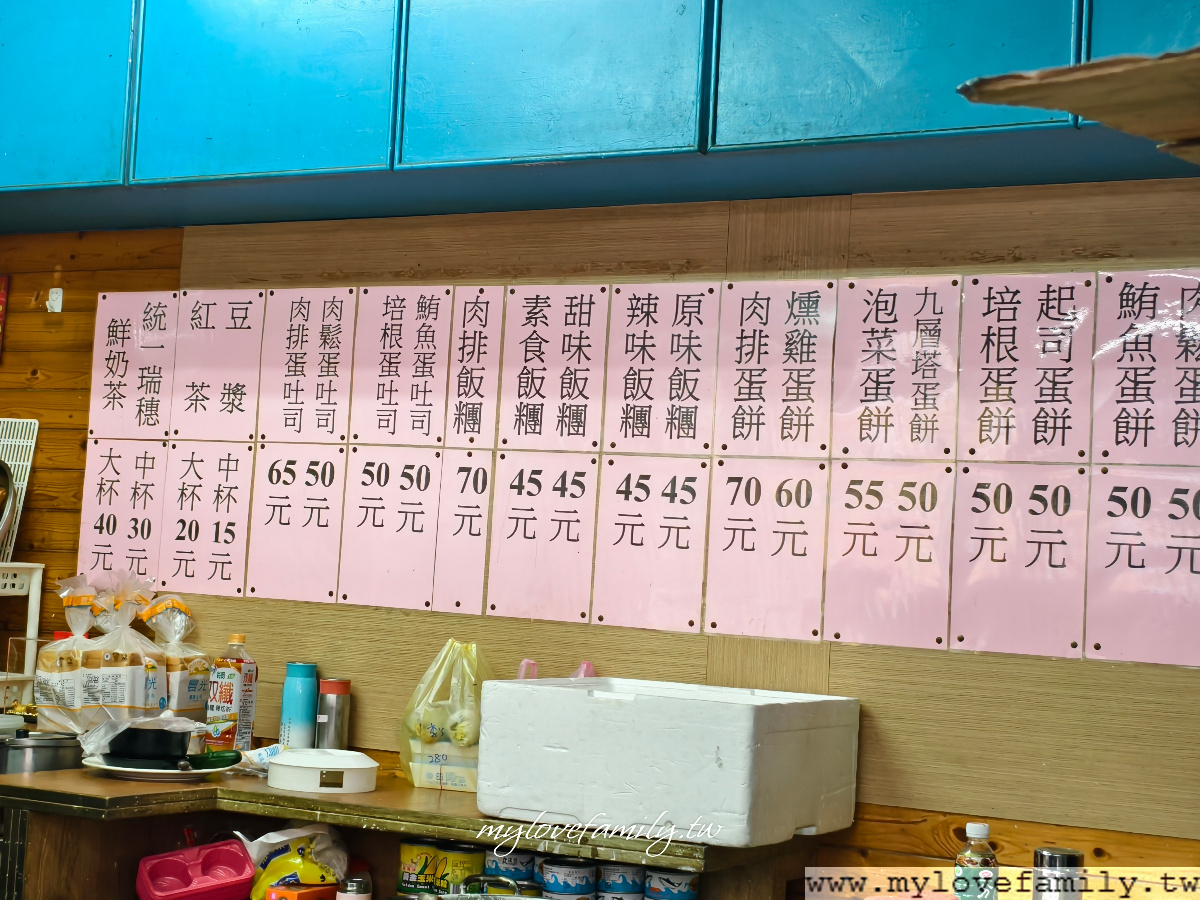 肉鬆蛋餅
50元
鮪魚蛋餅
50元
起司蛋餅
50元
培根蛋餅
50元
九層塔蛋餅
50元
泡菜蛋餅
55元
燻雞蛋餅
60元
肉排蛋餅
70元
原味飯糰
45元
辣味飯糰
45元
甜味飯糰
45元
素食飯糰
45元
肉排飯糰
70元
鮪魚蛋吐司
50元
培根蛋吐司
50元
肉鬆蛋吐司
50元
肉排蛋吐司
65元
豆漿
紅茶
中杯15元
大杯20元
統一瑞穗
鮮奶茶
中杯30元
大杯40元
双纖
280
mylovefamily.tw
www.mylovefamily.tw